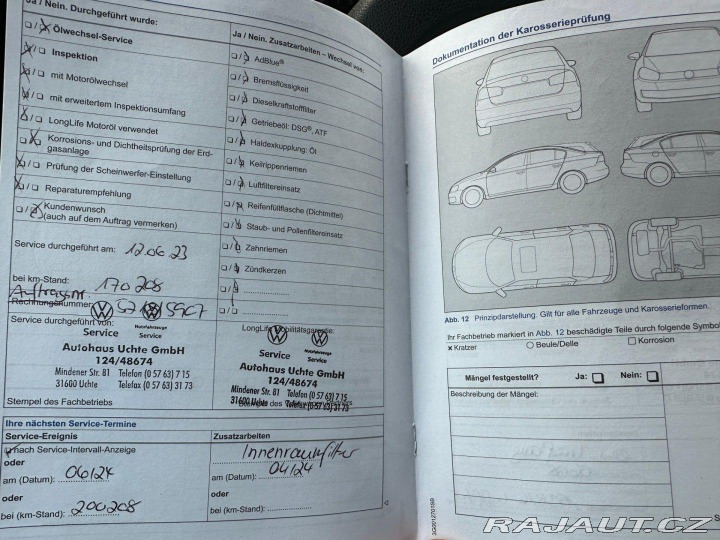 Ja / Nein. Durchgeführt wurde:
Ölwechsel-Service
Inspektion
mit Motorölwechsel
mit erweitertem Inspektionsumfang
LongLife Motoröl verwendet
Korrosions- und Dichtheitsprüfung der Erd-
gasanlage
Prüfung der Scheinwerfer-Einstellung
Reparaturempfehlung
Kundenwunsch
(auch auf dem Auftrag vermerken)
Service durchgeführt am: 12.06.23
bei km-Stand: 170 208
Auftragsnr.
Rechnungsnummer:
Service durchgeführt von:
Service
Nutzfahrzeuge
Service
Autohaus Uchte GmbH
124/48674
Mindener Str. 81 Telefon (0 57 63) 7 15
31600 Uchte Telefax (0 57 63) 31 73
Stempel des Fachbetriebs
Ja / Nein. Zusatzarbeiten – Wechsel von:
AdBlue®
Bremsflüssigkeit
Dieselkraftstofffilter
Getriebeöl: DSG®, ATF
Haldexkupplung: Öl
Keilrippenriemen
Luftfiltereinsatz
Reifenfüllflasche (Dichtmittel)
Staub- und Pollenfiltereinsatz
Zahnriemen
Zündkerzen
LongLife Mobilitätsgarantie:
Service
Service
Autohaus Uchte GmbH
124/48674
Mindener Str. 81 Telefon (0 57 63) 7 15
31600 Uchte Telefax (0 57 63) 31 73
Stempel des
Ihre nächsten Service-Termine
Service-Ereignis
nach Service-Intervall-Anzeige
oder
am (Datum): 06/24
oder
bei (km-Stand): 200208
Zusatzarbeiten
Innenraumfilter
am (Datum): 04/24
oder
bei (km-Stand):
Dokumentation der Karosserieprüfung
Abb. 12 Prinzipdarstellung. Gilt für alle Fahrzeuge und Karosserieformen.
Ihr Fachbetrieb markiert in Abb. 12 beschädigte Teile durch folgende Symbo
x Kratzer
Beule/Delle
Korrosion
Mängel festgestellt? Ja: Nein:
Beschreibung der Mängel:
RAJAUT.CZ